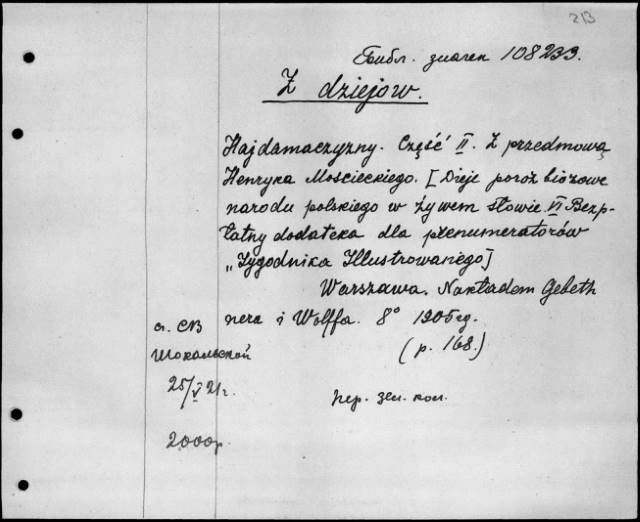 213
Библ. значек 108233.
Z dziejow.
Hajdamaczyzny. Część II. Z przedmową
Henryka Mościeckiego. [Dieje porozbiorowe
narodu polskiego w żywem słowie. VI Bezp-
łatny dodateka dla prenumeratorów
„Tygodnika Illustrowanego]
Warszawa. Nakładem Gebeth
nera i Wolffa. 8° 1905 г.
(p. 168.)
от СВ
Шокальской
25/V 21 г.
пер. зел. кол.
2000 р.